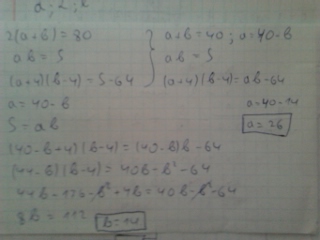 a; 2; k
2(a+b)=80 } a+b=40; a=40-b
ab=S } ab=S
(a+4)(b-4)=S-64 } (a+4)(b-4)=ab-64
a=40-b a=40-14
S=ab a=26
(40-b+4)(b-4)=(40-b)b-64
(44-b)(b-4)=40b-b²-64
44b-176-b²+4b=40b-b²-64
8b=112 b=14